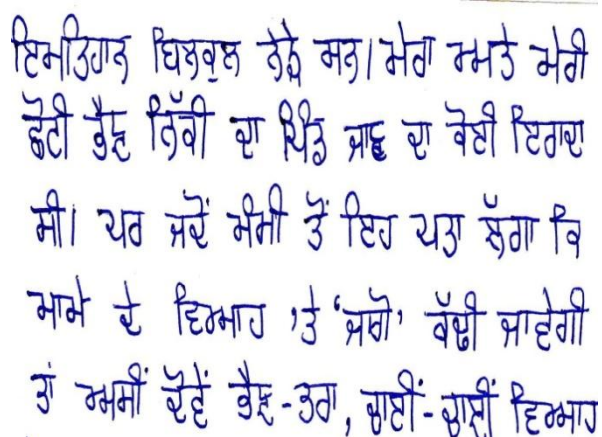 ਇਮਤਿਹਾਨ ਬਿਲਕੁਲ ਨੇੜੇ ਸਨ। ਮੇਰਾ ਅਤੇ ਮੇਰੀ
ਛੋਟੀ ਭੈਣ ਨਿੱਕੀ ਦਾ ਪਿੰਡ ਜਾਣ ਦਾ ਕੋਈ ਇਰਾਦਾ
ਸੀ। ਪਰ ਜਦੋਂ ਮੰਮੀ ਤੋਂ ਇਹ ਪਤਾ ਲੱਗਾ ਕਿ
ਮਾਮੇ ਦੇ ਵਿਆਹ 'ਤੇ ‘ਜਾਗੋ’ ਕੱਢੀ ਜਾਵੇਗੀ
ਤਾਂ ਅਸੀਂ ਦੋਵੇਂ ਭੈਣ-ਭਰਾ, ਚਾਈਂ-ਚਾਈਂ ਵਿਆਹ